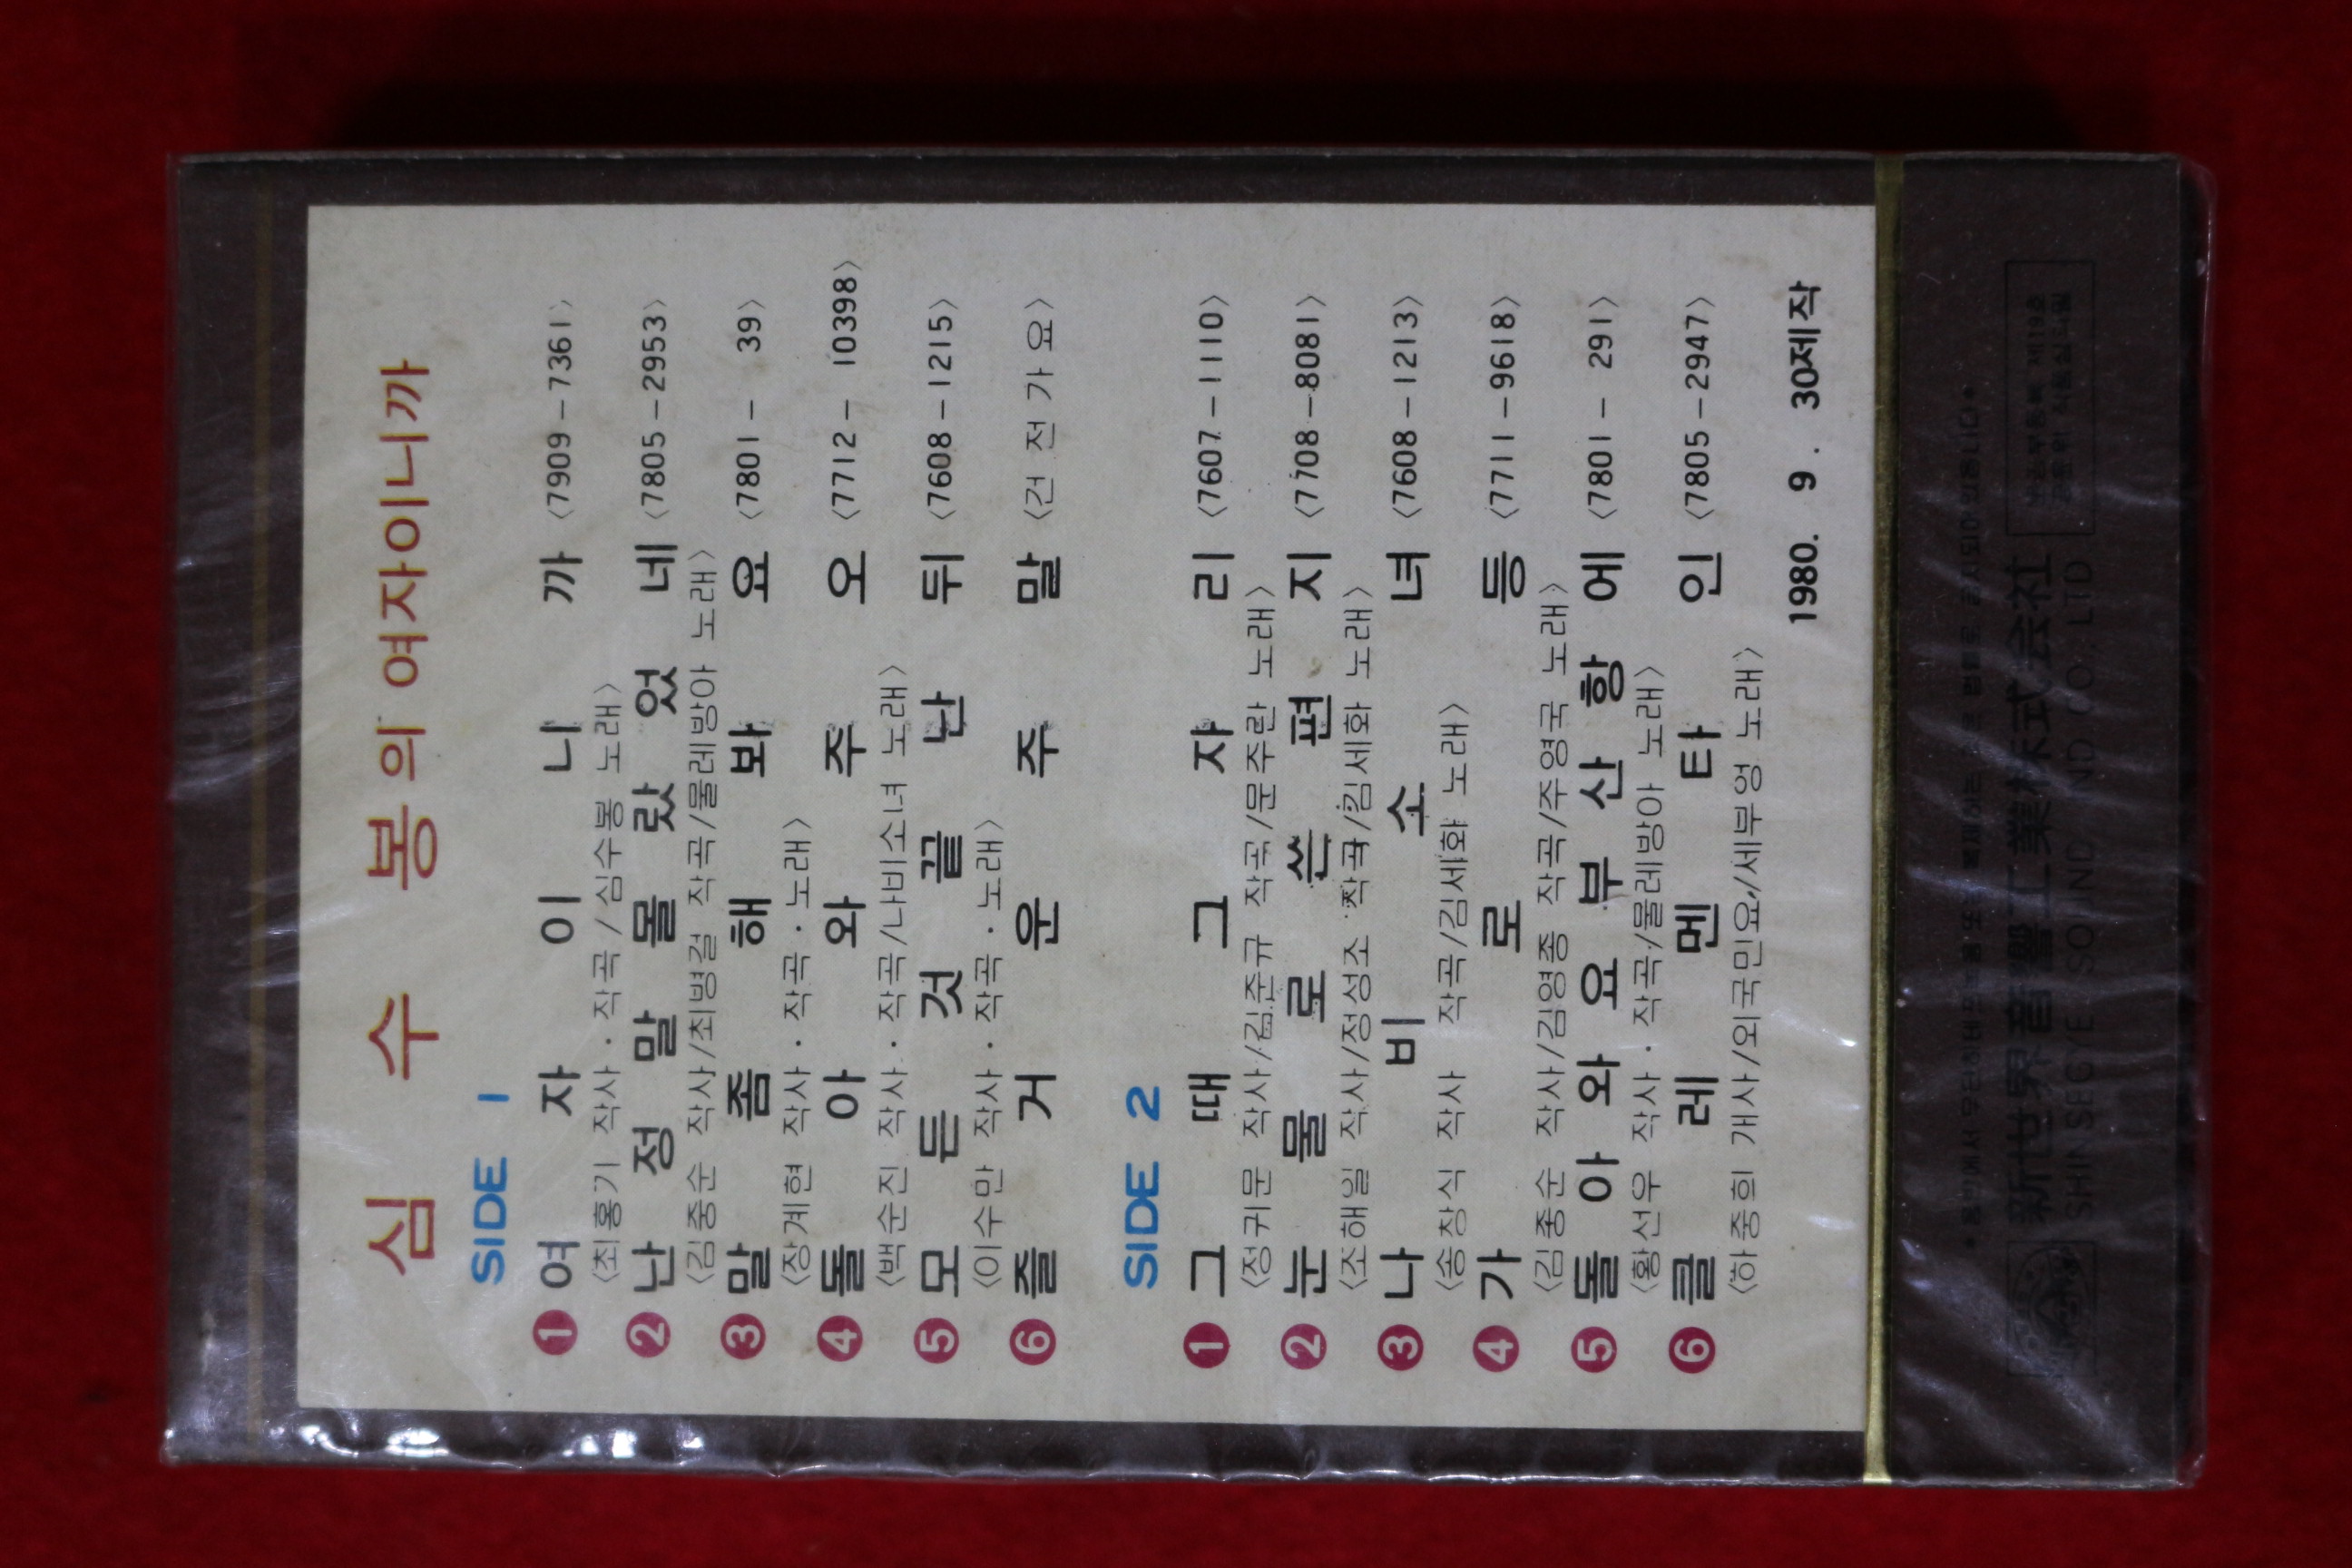 심 수 봉 의 여자이니까
SIDE 1
❶ 여 자 이 니 까 〈7909-7361〉
〈최홍기 작사·작곡/심수봉 노래〉
❷ 난 정 말 몰 랐 었 네 〈7805-2953〉
〈김중순 작사/최병걸 작곡/물레방아 노래〉
❸ 말 좀 해 봐 요 〈7801- 39〉
〈장계현 작사·작곡·노래〉
❹ 돌 아 와 주 오 〈7712- 10398〉
〈백순진 작사·작곡/나비소녀 노래〉
❺ 모 든 것 끝 난 뒤 〈7608-1215〉
〈이수만 작사·작곡·노래〉
❻ 즐 거 운 주 말 〈건 전 가 요〉
SIDE 2
❶ 그 때 그 자 리 〈7607-1110〉
〈정귀문 작사/김준규 작곡/문주란 노래〉
❷ 눈 물 로 쓴 편 지 〈7708-8081〉
〈조해일 작사/정성조 작곡/김세화 노래〉
❸ 나 비 소 녀 〈7608-1213〉
〈송창식 작사 작곡/김세화 노래〉
❹ 가 로 등 〈7711-9618〉
〈김중순 작사/김영종 작곡/주영국 노래〉
❺ 돌 아 와 요 부 산 항 에 〈7801- 291〉
〈황선우 작사·작곡/물레방아 노래〉
❻ 클 레 멘 타 인 〈7805-2947〉
〈하중희 개사/외국민요/세부엉 노래〉
1980. 9. 30제작
新世界音響工業株式会社
SHIN SEGYE SOUND IND CO., LTD